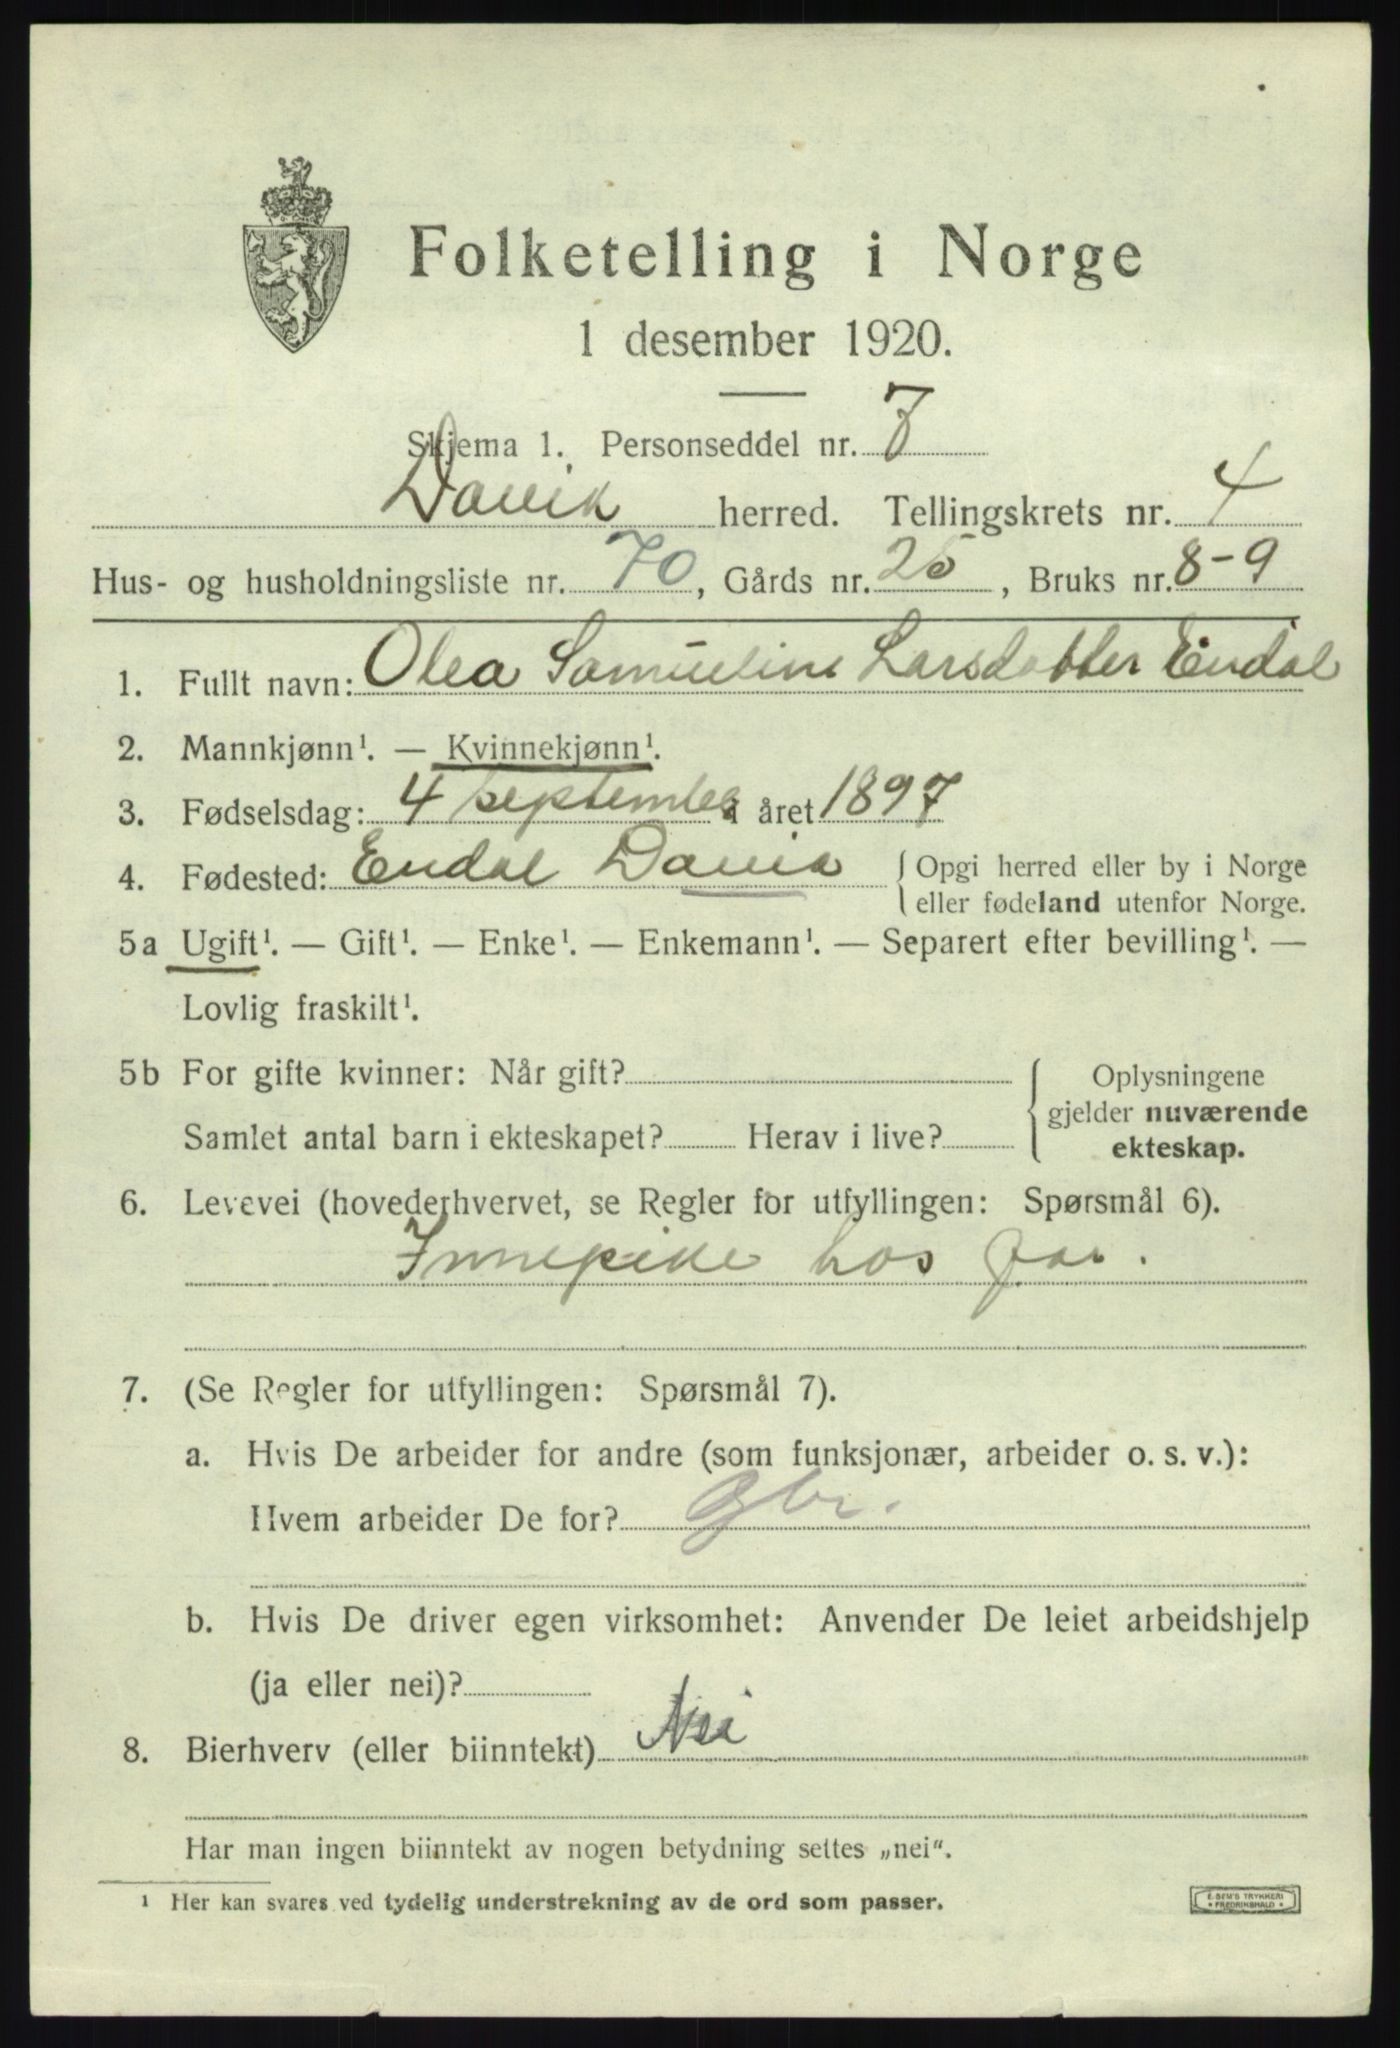 Folketelling i Norge
1 desember 1920.
Skjema 1. Personseddel nr. 7
Davik herred. Tellingskrets nr. 4
Hus- og husholdningsliste nr. 70, Gårds nr. 25, Bruks nr. 8-9
1. Fullt navn: Olea Samueline Larsdatter Endal
2. Mannkjønn¹. — Kvinnekjønn¹.
3. Fødselsdag: 4 september i året 1897
4. Fødested: Endal Davik { Opgi herred eller by i Norge
eller fødeland utenfor Norge.
5a Ugift¹. — Gift¹. — Enke¹. — Enkemann¹. — Separert efter bevilling¹. —
Lovlig fraskilt¹.
5b For gifte kvinner: Når gift? { Oplysningene
gjelder nuværende
Samlet antal barn i ekteskapet? Herav i live?
ekteskap.
6. Levevei (hovederhvervet, se Regler for utfyllingen: Spørsmål 6).
Innepike hos far.
7. (Se Regler for utfyllingen: Spørsmål 7).
a. Hvis De arbeider for andre (som funksjonær, arbeider o. s. v.):
Hvem arbeider De for? Gbr.
b. Hvis De driver egen virksomhet: Anvender De leiet arbeidshjelp
(ja eller nei)?
8. Bierhverv (eller biinntekt) Nei
Har man ingen biinntekt av nogen betydning settes „nei“.
¹ Her kan svares ved tydelig understrekning av de ord som passer.
E. SEM'S TRYKKERI
• FREDRIKSHALD •